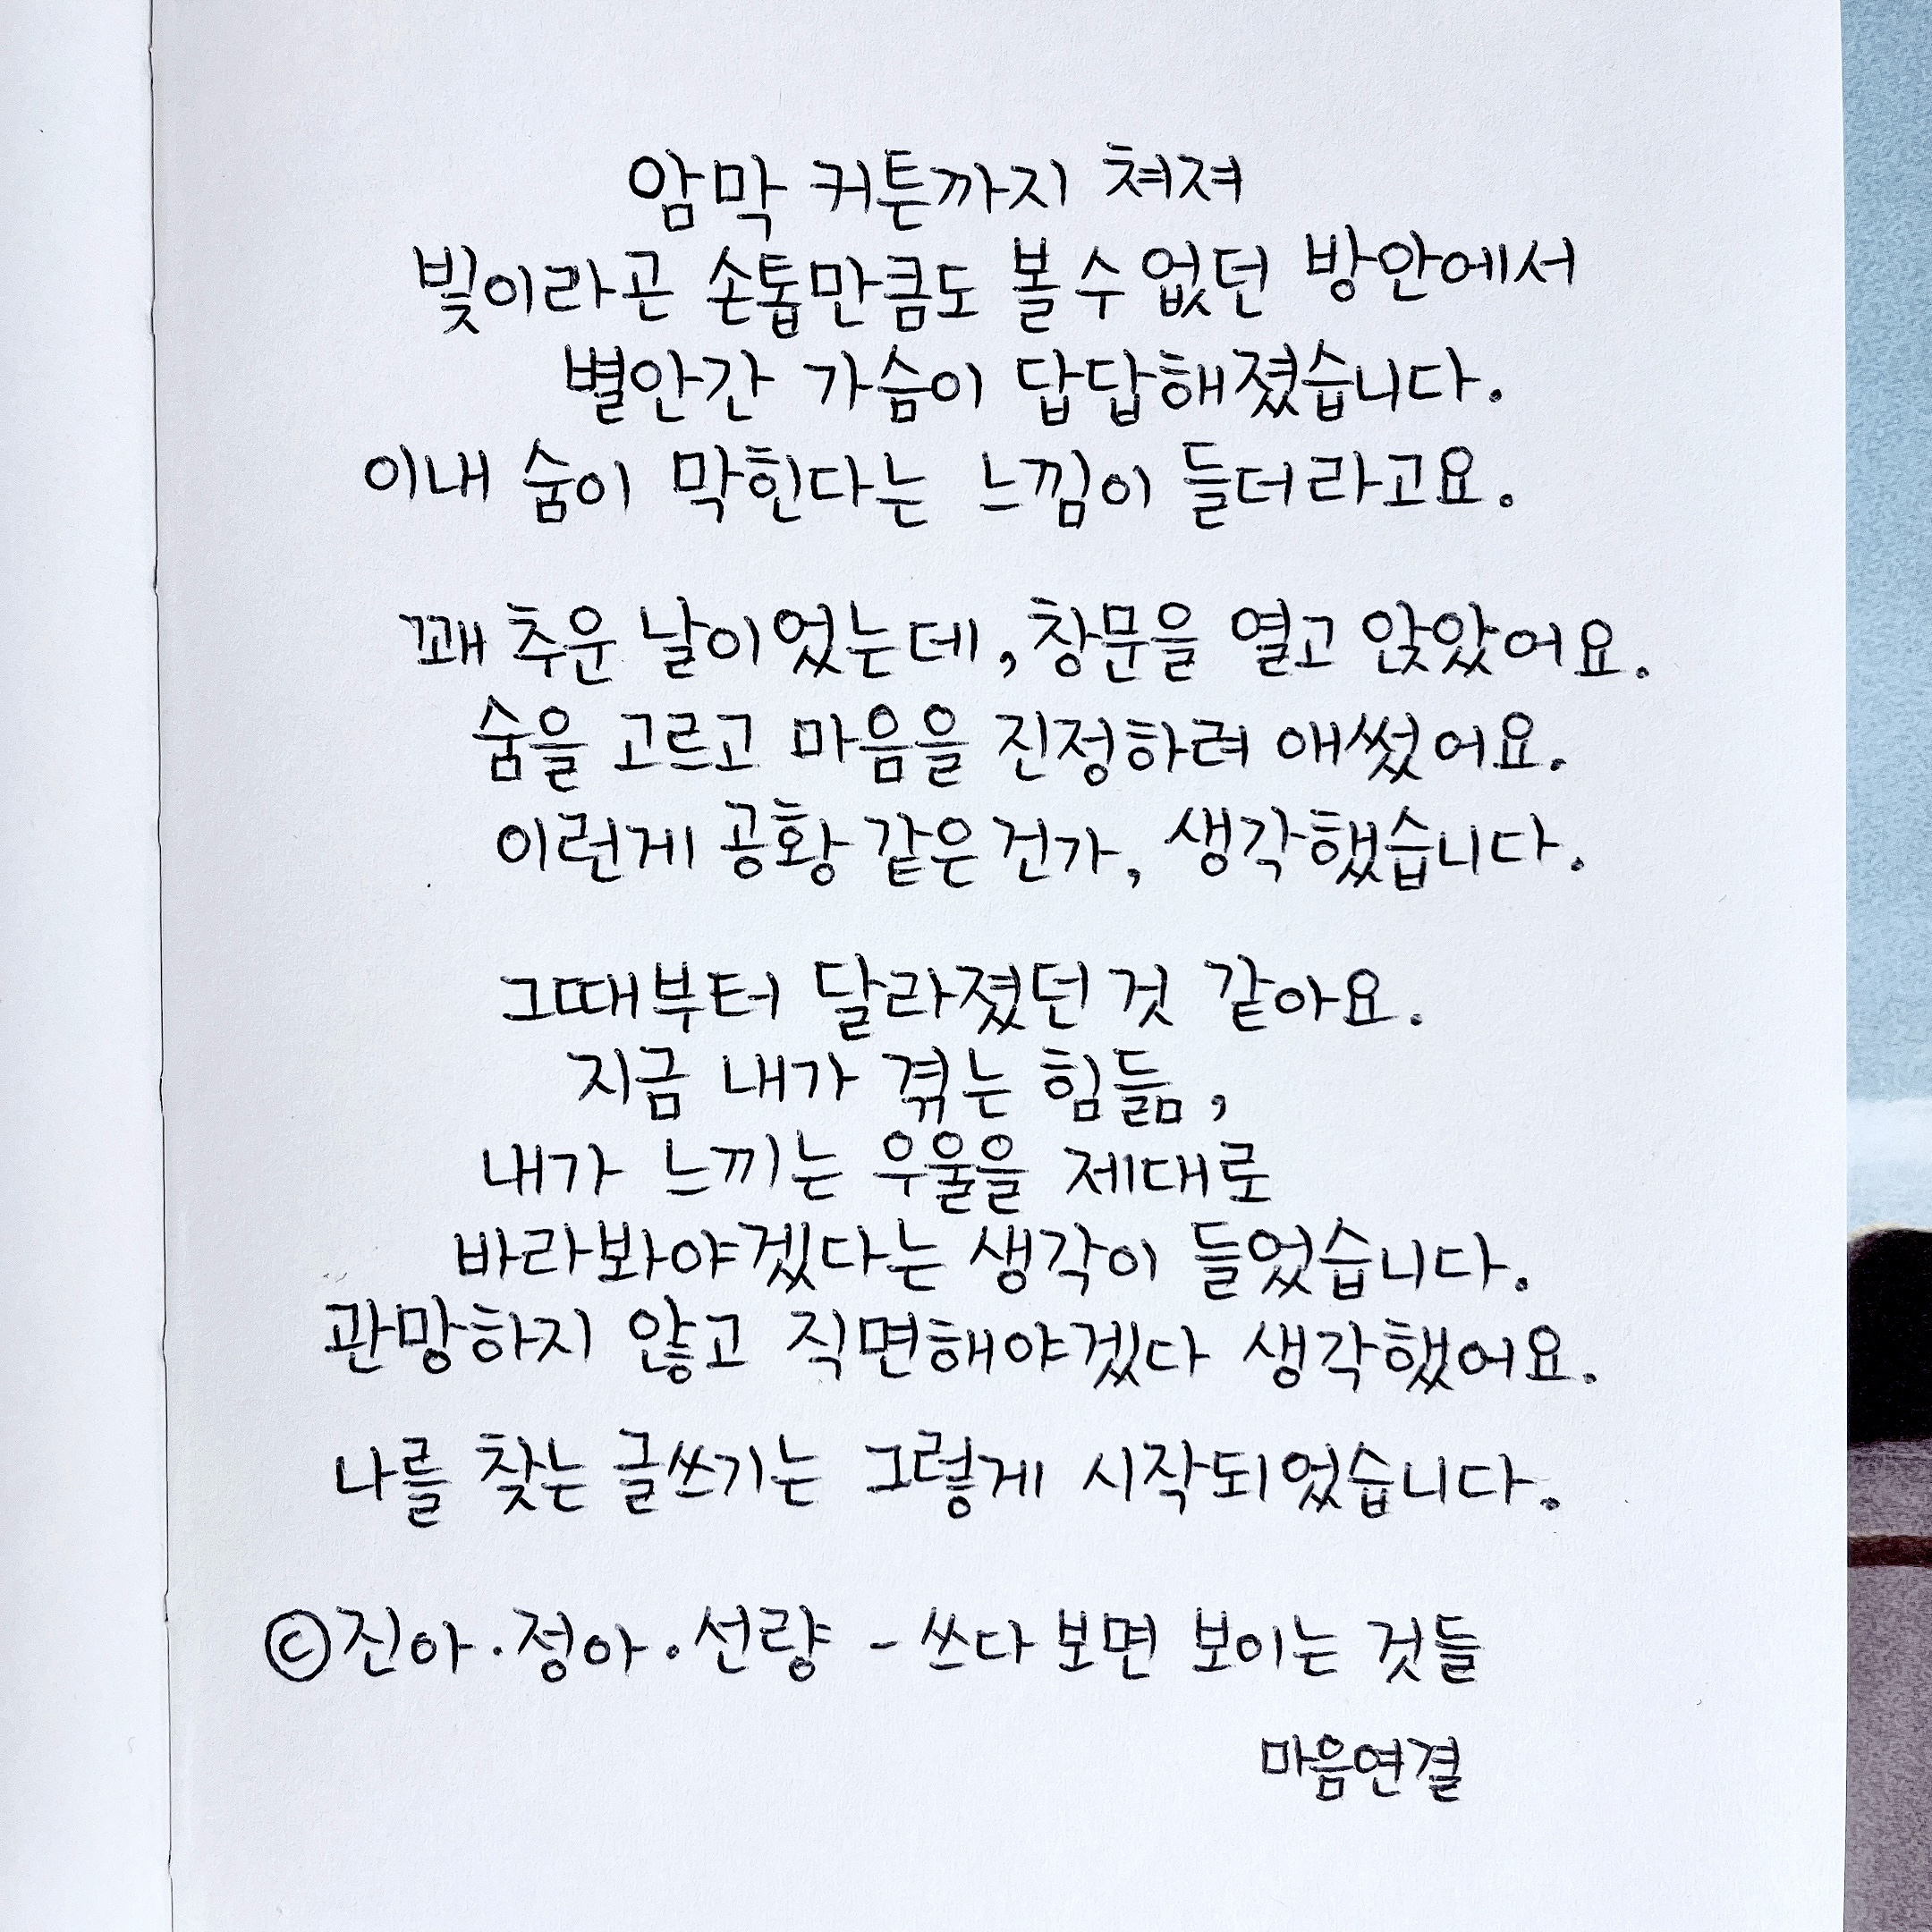 암막 커튼까지 쳐져
빛이라곤 손톱만큼도 볼 수 없던 방안에서
별안간 가슴이 답답해졌습니다.
이내 숨이 막힌다는 느낌이 들더라고요.
꽤 추운 날이었는데, 창문을 열고 앉았어요.
숨을 고르고 마음을 진정하려 애썼어요.
이런게 공황 같은 건가, 생각했습니다.
그때부터 달라졌던 것 같아요.
지금 내가 겪는 힘듦,
내가 느끼는 우울을 제대로
바라봐야겠다는 생각이 들었습니다.
관망하지 않고 직면해야겠다 생각했어요.
나를 찾는 글쓰기는 그렇게 시작되었습니다.
©진아·정아·선량 - 쓰다 보면 보이는 것들
마음연결